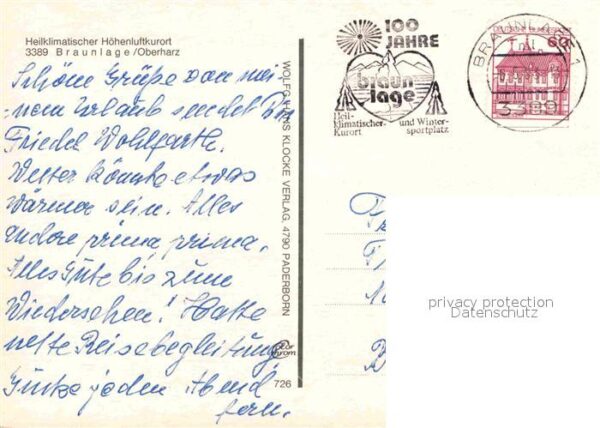 Heilklimatischer Höhenluftkurort
3389 Braunlage/Oberharz
Schöne Grüße von mei-
nem Urlaub sendet
Friedel Wohlfarth.
Wetter könnte etwas
wärmer sein. Alles
andere prima, prima.
Alles Gute bis zum
Wiedersehen! Hatte
nette Reisebegleitung
jeden Abend
fern.
WOLFGANG HANS KLOCKE VERLAG, 4790 PADERBORN
726
100
JAHRE
braun
-lage
Heil-
klimatischer-
Kurort
und Winter-
sportplatz
BRAUNLAGE 1
3389
60
privacy protection
Datenschutz